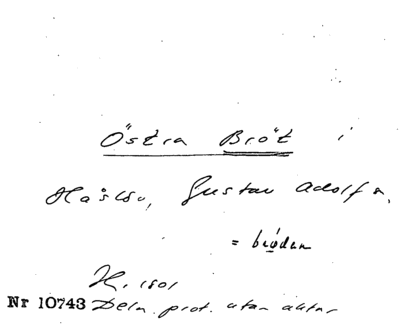 Östra Bröt i
Gustav Adolf s.
= bröden
H. 1801
Nr 10743 Deln. prot. utan aktnr